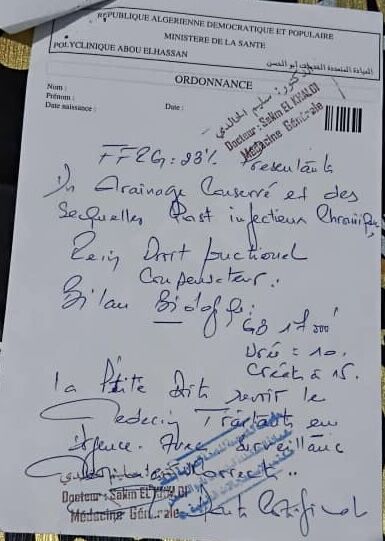 REPUBLIQUE ALGERIENNE DEMOCRATIQUE ET POPULAIRE
MINISTERE DE LA SANTE
POLYCLINIQUE ABOU ELHASSAN
العيادة المتعددة الخدمات أبو الحسن
ORDONNANCE
Nom :
Prénom :
Date naissance :
Date :
Docteur : Sakim EL KHALDI
Médecine Générale
23% Presentants
Un drainage Conservé et des
Sequelles Post infectieux Chronique
Rein Droit fonctionel
Compensateur.
Bilan Biologique:
GB 17 000
Urée = 10.
Créat = 15.
La Petite doit revoir le
Medecin Traitant en
Urgence. Surveillance
Correct..
Docteur : Sakim EL KHALDI
Médecine Générale